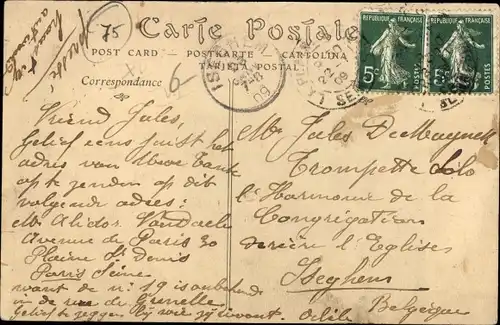 75
Carte Postale
POST CARD — POSTKARTE — CARTOLINA
TARJETA POSTAL
Correspondance
6
REPUBLIQUE FRANÇAISE
REPUBLIQUE FRANÇAISE
5c
POSTES
5c
POSTES
Vriend Jules,
Gelief eens juist het
adres van Uwe Tante
op te zenden op dit
volgende adres:
Mr Alidor Vandaele
Avenue de Paris 30
Plaine St Denis
Paris Seine
want de nr 19 is onbekend
in de rue de Grenelle
gelief te zeggen bij wie zij woont.
Mr Jules De Meynck
Trompette Solo
l'Harmonie de la
Congrégation
derière l'Eglises
Iseghem
Belgique